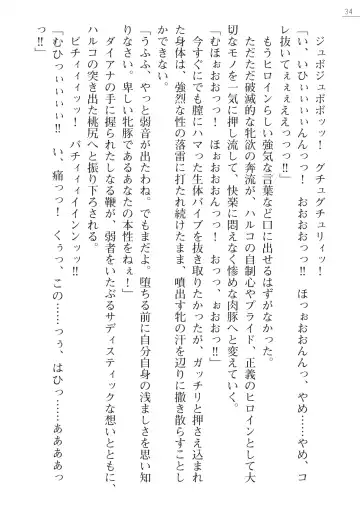 34
ジュボジュボボッッ！　グチュグチュリィッ！
「い、いひぃぃぃんんっっ！　おおおおっっ！　ほっぉおおおんんっ、やめ……やめ、コ
レ抜いてぇぇぇええっっっ!!」
もうヒロインらしい強気な言葉など口に出せるはずがなかった。
ただただ破滅的な牝欲の奔流が、ハルコの自制心やプライド、正義のヒロインとして大
切なモノを一気に押し流して、快楽に悶えなく惨めな肉豚へと変えていく。
「むほぉおおっっ！　ほぉおおおんっっ！　おっっ、ぉおおっ!!」
今すぐにでも膣にハマった生体バイブを抜き取りたかったが、ガッチリと押さえ込まれ
た身体は、強烈な性の落雷に打たれ続けたまま、噴出す牝の汗を辺りに撒き散らすことし
かできない。
「うふふ、やっと弱音が出たわね。でもまだよ。堕ちる前に自分自身の浅ましさを思い知
りなさい。卑しい牝豚であるあなたの本性をねぇ！」
ダイアナの手に握られたしなる鞭が、弱者をいたぶるサディスティックな想いとともに、
ハルコの突き出た桃尻へと振り下ろされる。
ピチィィィッッ！　バチィィイイインンッッ!!
「むひっぃぃぃぃ!!　い、痛っっ！　くぅっっ、この……っっぅ、はひっ……ああああっ
っ!!